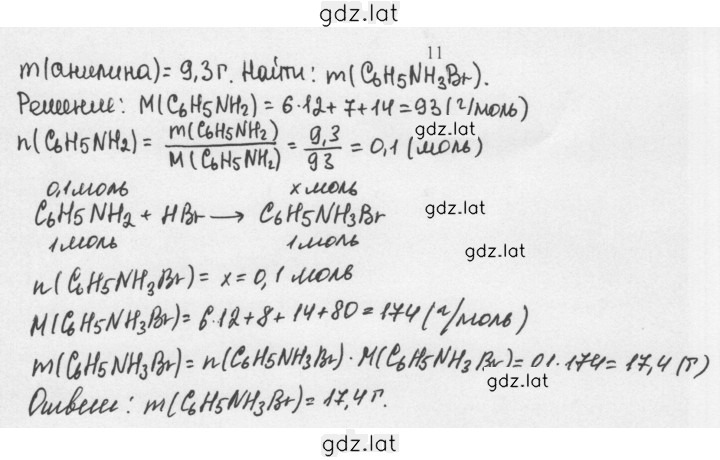 gdz.lat
11
m(анилина) = 9,3 г. Найти: m(C6H5NH3Br).
Решение: M(C6H5NH2) = 6·12+7+14=93 (г/моль)
gdz.lat
n(C6H5NH2) = m(C6H5NH2) / M(C6H5NH2) = 9,3 / 93 = 0,1 (моль)
0,1 моль x моль
C6H5NH2 + HBr → C6H5NH3Br gdz.lat
1 моль 1 моль
gdz.lat
n(C6H5NH3Br) = x = 0,1 моль
M(C6H5NH3Br) = 6·12+8+14+80=174 (г/моль)
m(C6H5NH3Br) = n(C6H5NH3Br)·M(C6H5NH3Br) = 01·174=17,4 (г)
gdz.lat
Ответ: m(C6H5NH3Br)=17,4 г.
gdz.lat